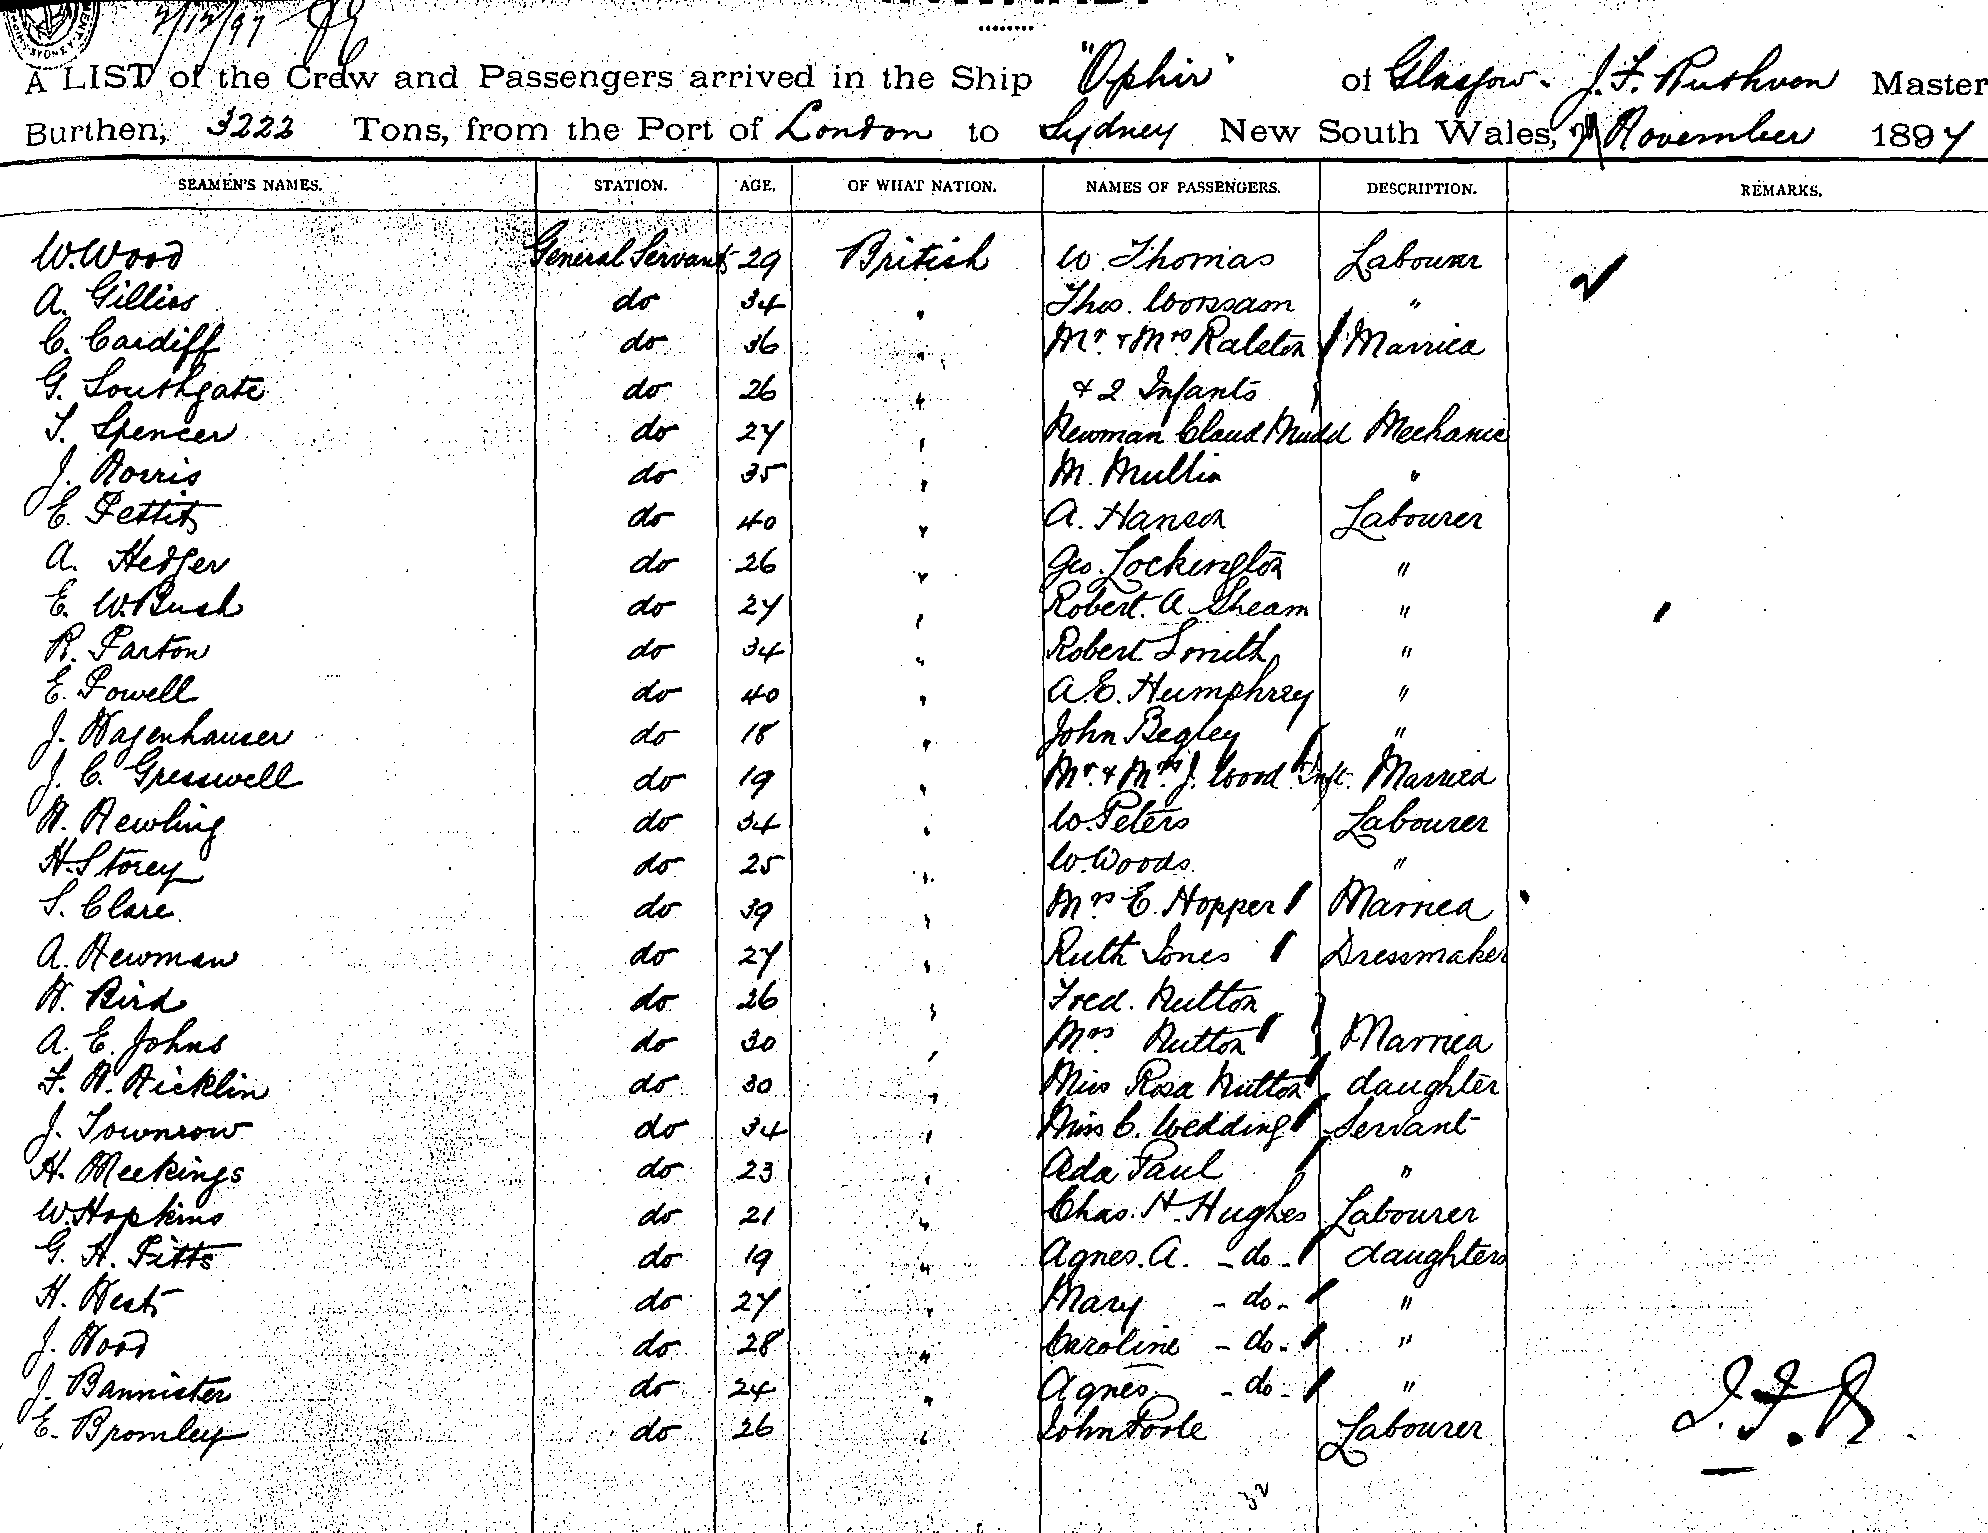 2/12/97
A LIST of the Crew and Passengers arrived in the Ship "Ophir" of Glasgow. J. F. Ruthven Master
Burthen, 3223 Tons, from the Port of London to Sydney New South Wales, November 1897
SEAMEN'S NAMES. STATION. AGE. OF WHAT NATION. NAMES OF PASSENGERS. DESCRIPTION. REMARKS.
W. Wood General Servant 29 British W. Thomas Labourer
A. Gillies do 34 " Thos. Worssam "
C. Cardiff do 36 " Mr. & Mrs Ralston Married
G. Southgate do 26 " & 2 Infants
T. Spencer do 27 " Newman Claud Mudd Mechanic
J. Norris do 35 " M. Mullin "
E. Pettit do 40 " A. Hanson Labourer
A. Hedger do 26 " Geo. Lockington "
E. W. Bush do 27 " Robert. A. Sheam "
R. Parton do 34 " Robert Smith "
E. Powell do 40 " A. E. Humphrey "
J. Wagenhauser do 18 " John Begley "
J. C. Gresswell do 19 " Mr. & Mrs J. Wood Inft. Married
W. Newling do 34 " W. Peters Labourer
H. Storey do 25 " W. Woods "
S. Clare do 39 " Mrs E. Hopper Married
A. Newman do 27 " Ruth Jones Dressmaker
W. Bird do 26 " Fred. Nutton
A. E. Johns do 30 " Mrs. Nutton Married
F. W. Nicklin do 30 " Miss Rosa Nutton daughter
J. Townrow do 34 " Miss C. Wedding Servant
H. Meekings do 23 " Ada Paul "
W. Hopkins do 21 " Chas. H. Hughes Labourer
G. H. Pitts do 19 " Agnes. A. - do - daughters
H. West do 27 " Mary - do - "
J. Wood do 28 " Caroline - do - "
J. Bannister do 24 " Agnes - do - "
E. Bromley do 26 " John Poole Labourer
J. F. R.
32